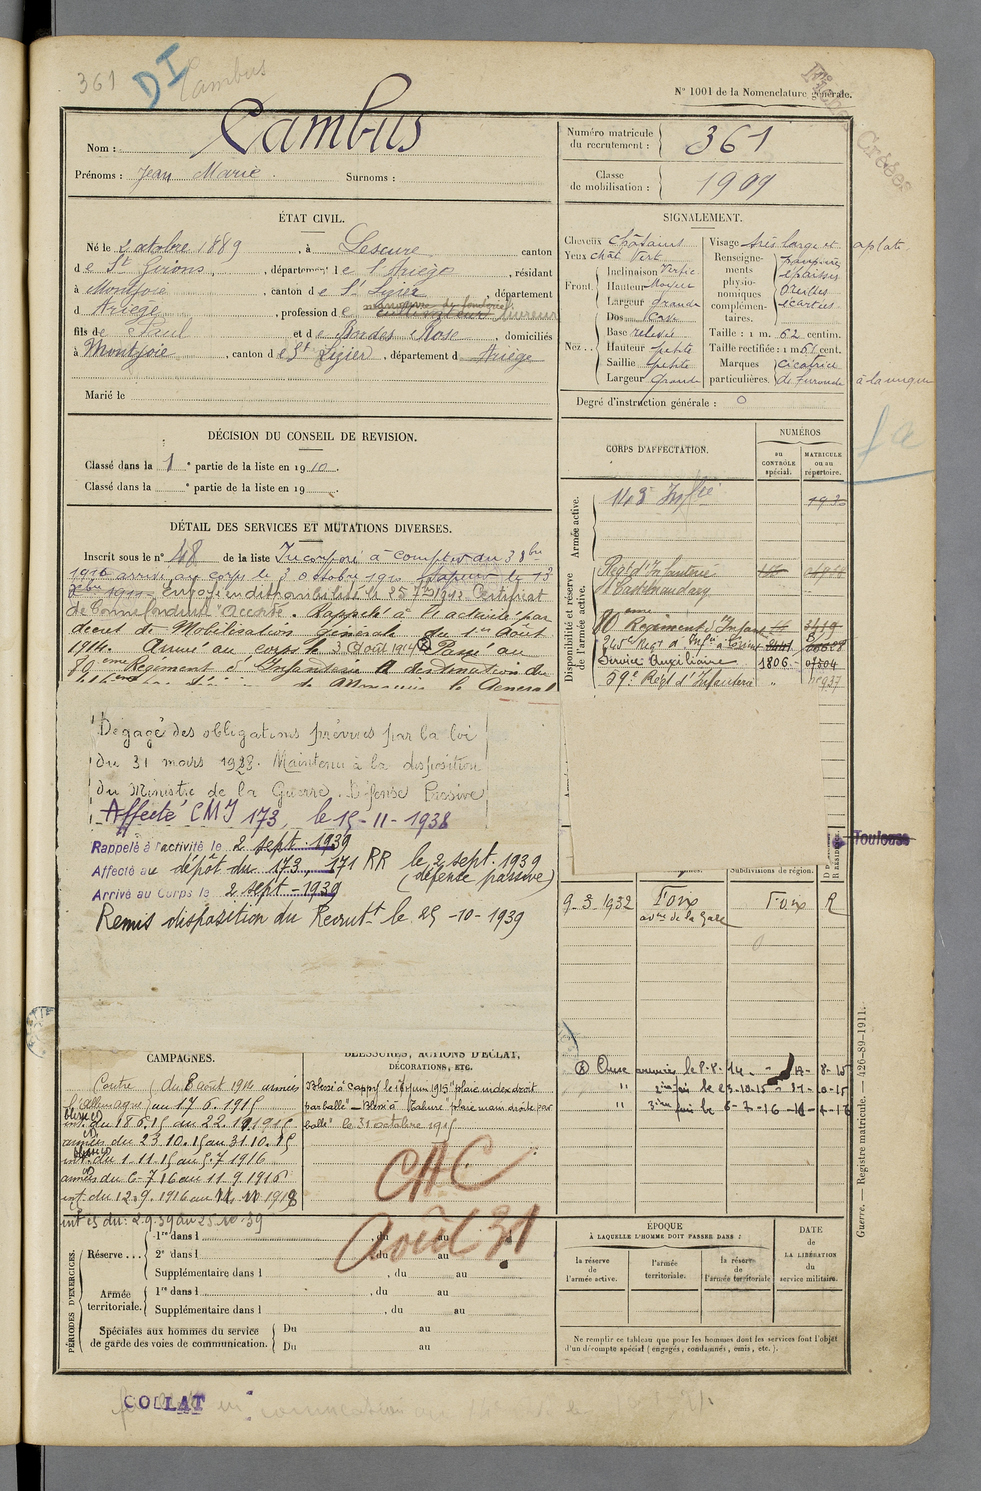 361 DI Cambus
N° 1001 de la Nomenclature générale.
Fiches Créées
Nom : Cambus
Prénoms : Jean Marie. Surnoms :
Numéro matricule du recrutement : 361
Classe de mobilisation : 1909
ÉTAT CIVIL.
Né le 2 octobre 1889, à Lescure canton
de St Girons, département de l'Ariège, résidant
à Montjoie, canton de St Lizier, département
d Ariège, profession de cultivateur livreur
fils de Paul et de Andes Rose, domiciliés
à Montjoie, canton de St Lizier, département d Ariège
Marié le
SIGNALEMENT.
Cheveux châtains
Yeux chat. Vert
Front Inclinaison Vertic
Hauteur Moyen
Largeur grande
Nez Dos Cave
Base relevée
Hauteur petite
Saillie petite
Largeur grande
Visage très large et aplati.
Renseignements physionomiques complémentaires. paupières épaisses oreilles écartées
Taille : 1 m. 62 centim.
Taille rectifiée : 1 m 61 cent.
Marques particulières. cicatrice de furoncle à la nuque
Degré d'instruction générale : 0
DÉCISION DU CONSEIL DE REVISION.
Classé dans la 1e partie de la liste en 1910.
Classé dans la e partie de la liste en 19
CORPS D'AFFECTATION.
NUMÉROS
au CONTRÔLE spécial.
MATRICULE ou au répertoire.
Armée active.
143e Inf rie
Disponibilité et réserve de l'armée active.
Régt d'Infanterie
Castelnaudary
80eme Régiment d'Infant
Service Auxiliaire 1806.
59e Régt d'Infanterie
DÉTAIL DES SERVICES ET MUTATIONS DIVERSES.
Inscrit sous le n° 48 de la liste Incorporé à compter du 3 8bre
1910 arrivé au corps le 3 octobre 1910 Sapeur le 13
1911. Envoyé en disponibilité le 25 7bre 1912 Certificat
de bonne conduite "Accordé". Rappelé à l'activité par
decret de Mobilisation Generale du 1er Août
1914. Arrivé au corps le 3 Août 1914 Passé au
80eme Régiment d'Infanterie A destination du
Dégagé des obligations prévues par la loi
du 31 mars 1928. Maintenu à la disposition
du Ministre de la Guerre. Défense Passive
Affecté CMI 173, le 15-11-1938
Rappelé à l'activité le 2 sept. 1939
Affecté au dépôt du 173, 171 RR le 2 sept. 1939
(défence passive)
Arrivé au Corps le 2 sept - 1939
Remis disposition du Recrutt le 25-10-1939
Toulouse
Subdivisions de région.
9-3-1932 Foix avue de la Gare Foix R
CAMPAGNES.
Contre l'Allemagne du 8 août 1914 armées au 17.6.1915
blessé int. du 18.6.15 au 22.1.1915
armées du 23.10.15 au 31.10.15
blessé int. du 1.11.15 au 5.7 1916
armées du 6-7 16 au 11-9.1916
int. du 12.9.1916 au 11.11 1918
int es du: 2.9.39 au 25.10.39
BLESSURES, ACTIONS D'ÉCLAT, DÉCORATIONS, ETC.
Blessé à Cappy le 16 juin 1915 "plaie index droit
par balle" — Blessé à Tahure "plaie main droite par
balle" le 31 octobre 1915
CAC
Août 31
2ème fois le 23-10-15
3ème fois le 6-7-16
Guerre. — Registre matricule. — 426-89-1911.
PÉRIODES D'EXERCICES.
Réserve... 1re dans l , du au
2e dans l , du au
Supplémentaire dans l , du au
Armée territoriale. 1re dans l , du au
Supplémentaire dans l , du au
Spéciales aux hommes du service de garde des voies de communication. Du au
Du au
ÉPOQUE
À LAQUELLE L'HOMME DOIT PASSER DANS :
la réserve de l'armée active.
l'armée territoriale.
la réserve de l'armée territoriale
DATE de LA LIBÉRATION du service militaire.
Ne remplir ce tableau que pour les hommes dont les services font l'objet
d'un décompte spécial (engagés, condamnés, omis, etc.).
COLLAT